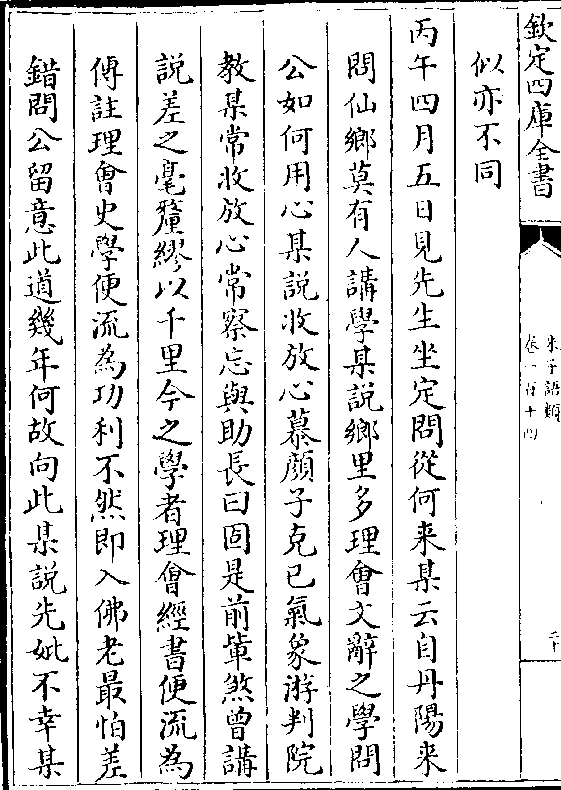 欽定四庫全書
朱子語類
卷一百十四
二十
似亦不同
丙午四月五日見先生坐定問從何来某云自丹陽来
問仙鄉莫有人講學某説鄉里多理會文辭之學問
公如何用心某説收放心慕顔子克己氣象游判院
教某常收放心常察忘與助長曰固是前輩煞曽講
説差之毫釐繆以千里今之學者理㑹經書便流為
傳註理㑹史學便流為功利不然即入佛老最怕差
錯問公留意此道幾年何故向此某説先妣不幸某